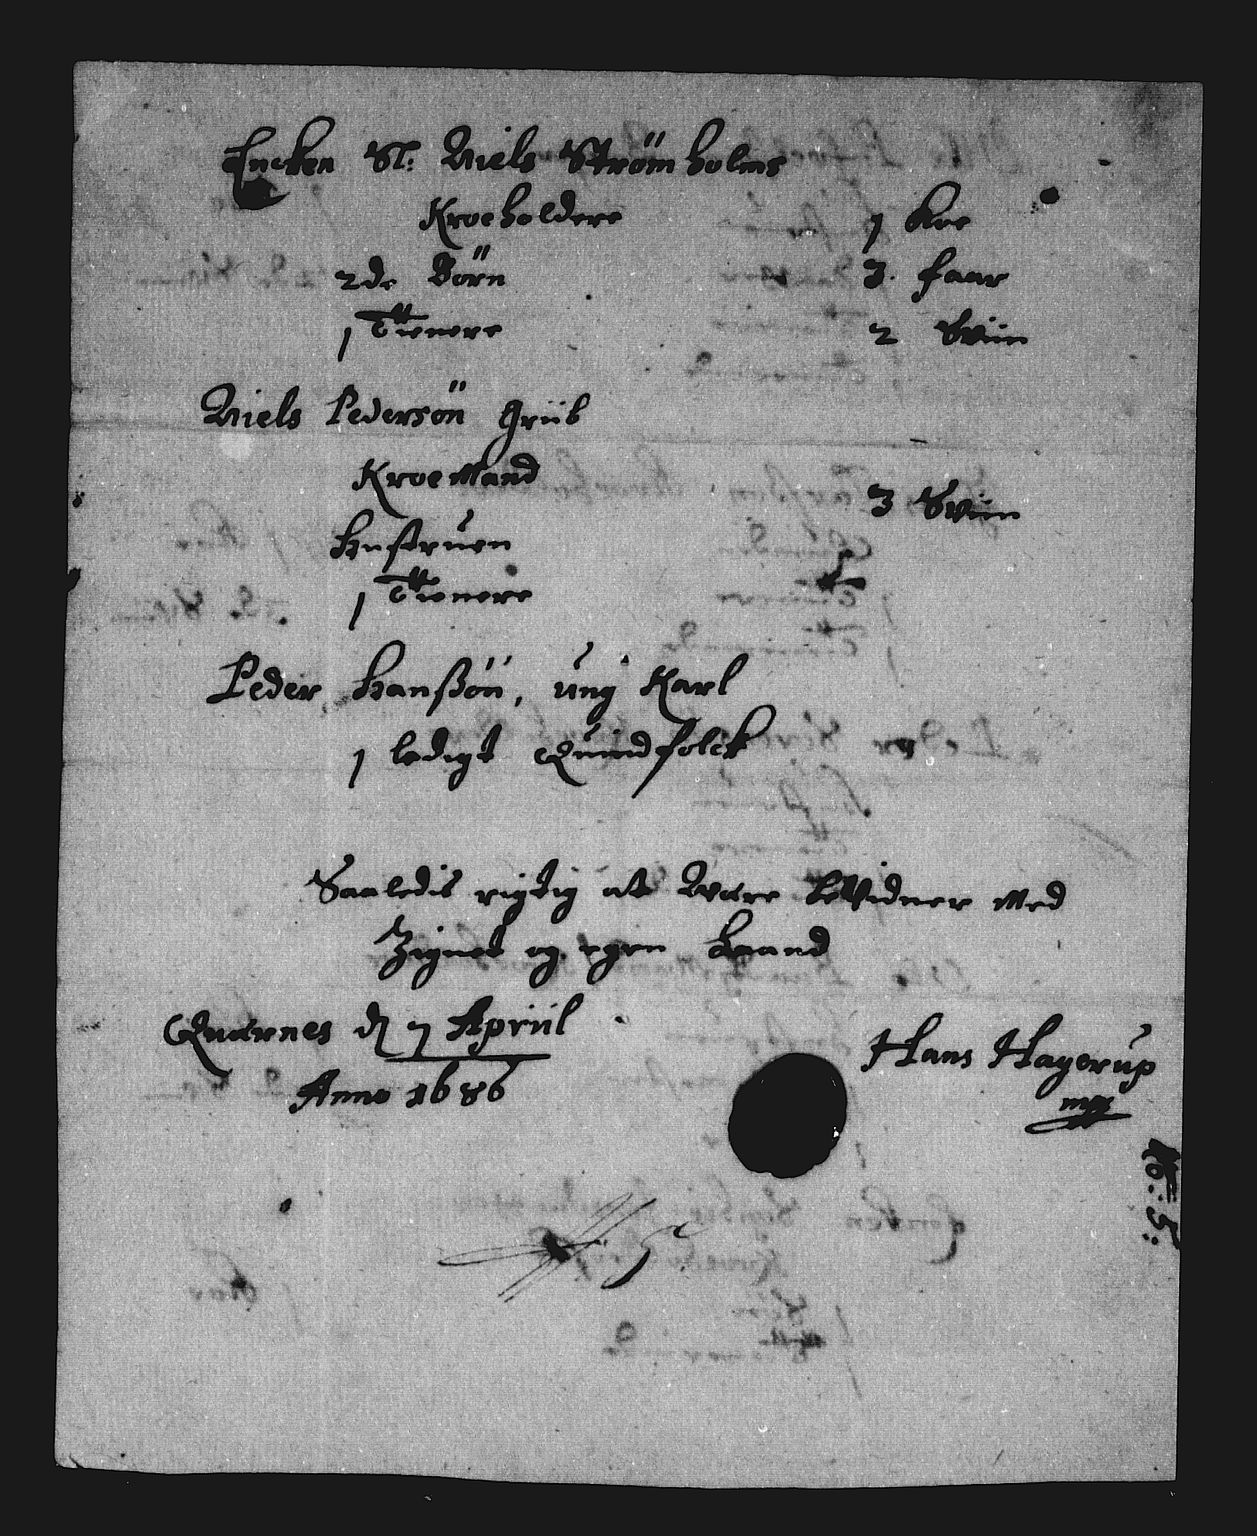 Encken Sl: Niels Strømholms
Kroeholdere 1 Koe
2de Börn 3. faar
1 Tienere 2 Sviin
Niels Pedersøn Griib
Kroemand
3 Sviin
Hustruen
1 Tienere
Peder Hanßøn, ung Karl
1 ledigt Quindfolck
Saaledis rigtig at være beVidner med
Zignet og egen Haand
Quærnes d 7 Apriil
Anno 1686
Hans Hagerup
mpp